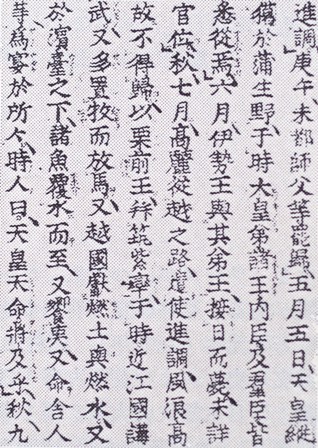 進調庚午末都師父等罷歸五月五日天皇縱
獦於蒲生野于時大皇弟諸王內臣及群臣皆
悉從焉六月伊勢王與其弟王接日而薨未詳
官位秋七月高麗從越之路遣使進調風浪高
故不得歸以栗前王拜筑紫率于時近江國講
武又多置牧而放馬又越國獻燃土與燃水又
於濱臺之下諸魚覆水而至又饗蝦夷又命舍人
等爲宴於所々時人曰天皇天命將及乎秋九